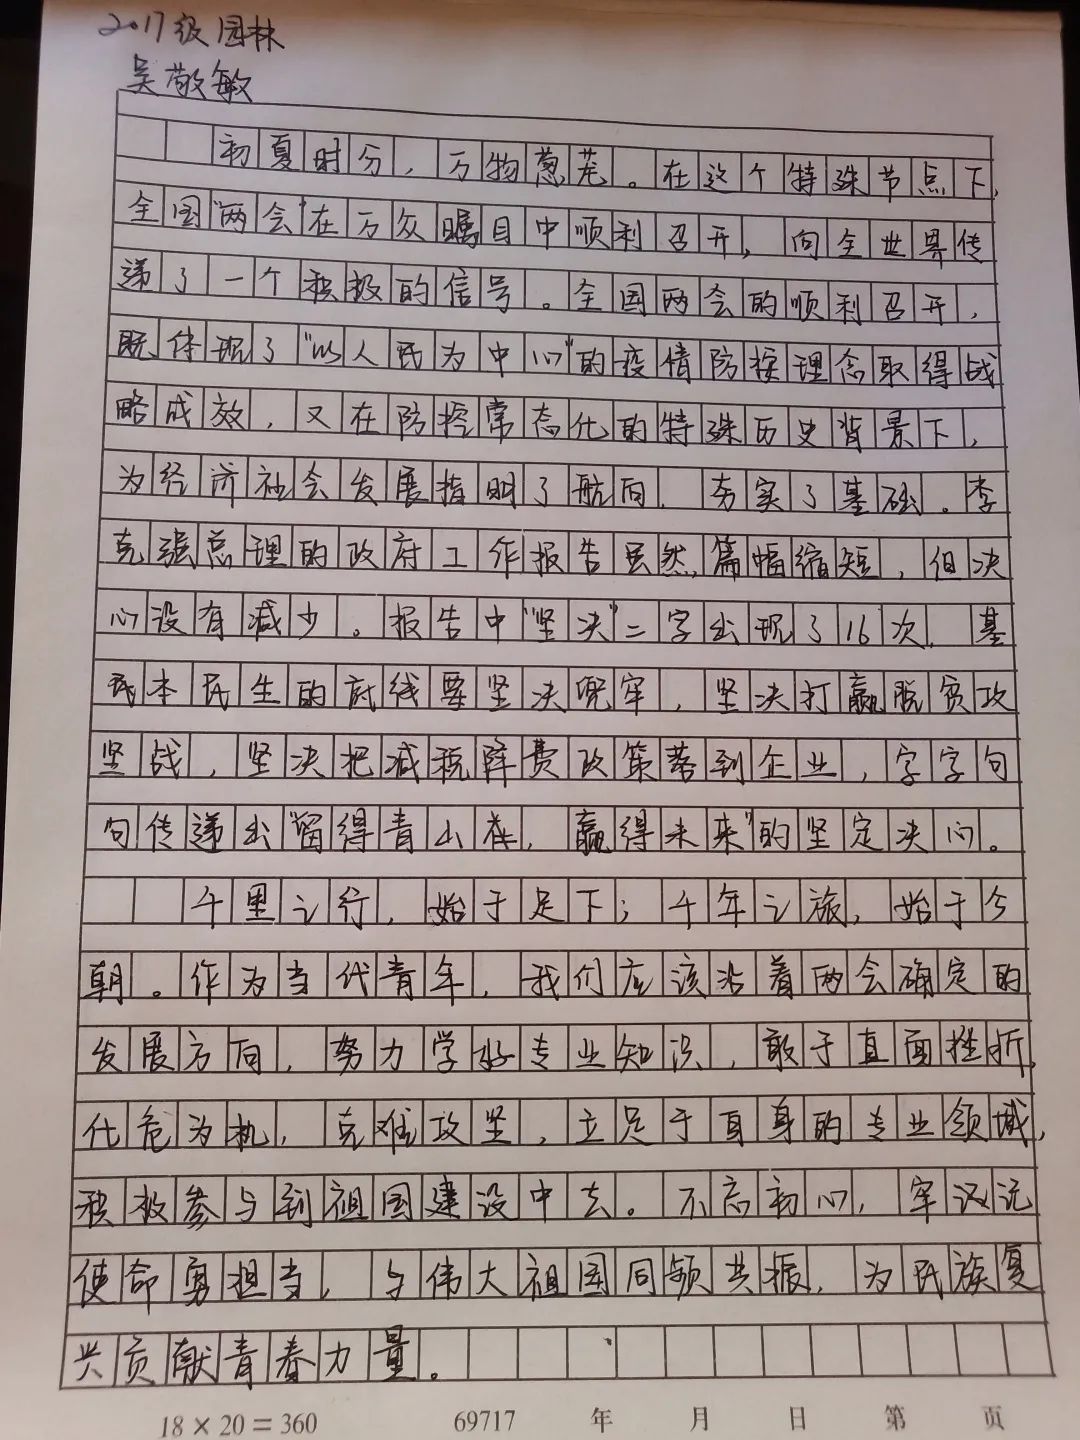 2017级园林
吴敬敏
初夏时分，万物葱茏。在这个特殊节点下，
全国"两会"在万众瞩目中顺利召开，向全世界传
递了一个积极的信号。全国两会的顺利召开，
既体现了"以人民为中心"的疫情防控理念取得战
略成效，又在防控常态化的特殊历史背景下，
为经济社会发展指明了航向，夯实了基础。李
克强总理的政府工作报告虽然篇幅缩短，但决
心没有减少。报告中"坚决"二字出现了16次，基
民本民生的底线要坚决兜牢，坚决打赢脱贫攻
坚战，坚决把减税降费政策落到企业，字字句
句传递出"留得青山在，赢得未来"的坚定决心。
千里之行，始于足下；千年之旅，始于今
朝。作为当代青年，我们应该沿着两会确定的
发展方向，努力学好专业知识，敢于直面挫折，
化危为机，克难攻坚，立足于自身的专业领域，
积极参与到祖国建设中去。不忘初心，牢记
使命勇担当，与伟大祖国同频共振，为民族复
兴贡献青春力量。
18×20=360 69717 年 月 日 第 页